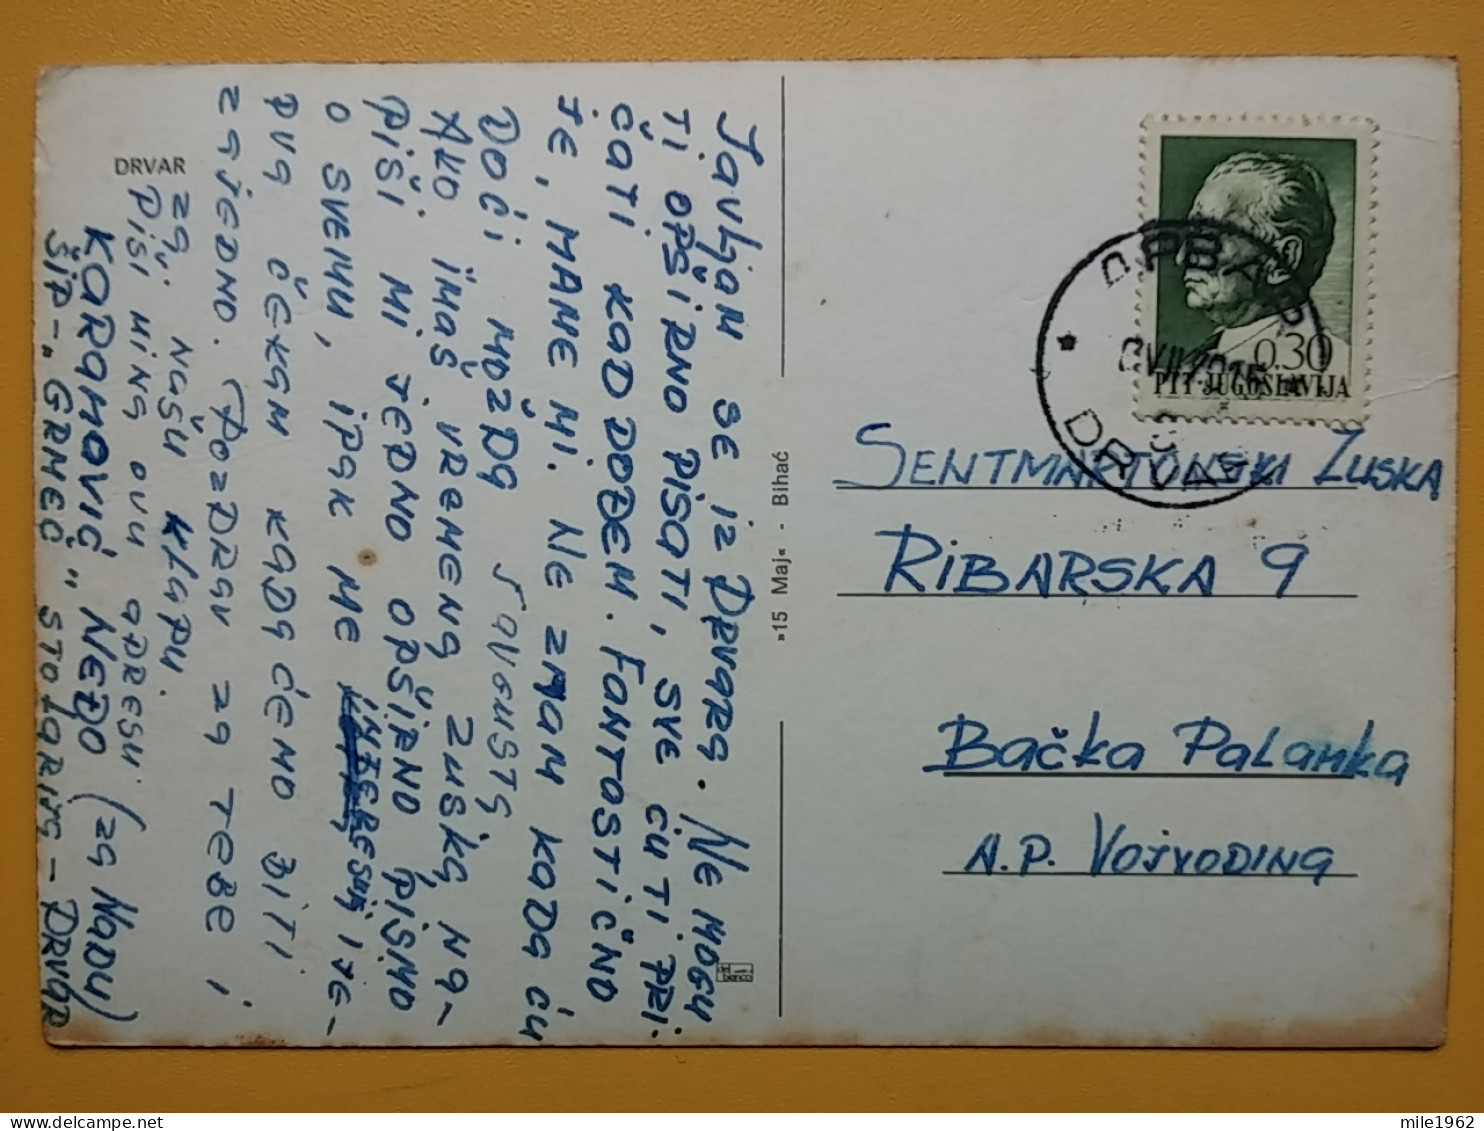 DRVAR
Javljam se iz Drvara. Ne mogu
ti opširno pisati, sve ću ti pri-
čati kad dođem. Fantostično
je, mame mi. Ne znam kada ću
doći možda s avgusta
Ako imaš vremena Zuska, na-
piši mi jedno opširno pismo
o svemu, ipak me interesuj je-
dva čekam kada ćemo biti
zajedno. Pozdrav za tebe i
za našu klapu.
Piši mi na ovu adresu
Karanović Neđo (za Nadu)
ŠIP-„GRMEČ" STOLARIJA-DRVAR
»15 Maj« - Bihać
del bianco
0.30
PTT-JUGOSLAVIJA
ДРВАР
DRVAR
SENTMARTONSKI ZUSKA
RIBARSKA 9
Bačka Palanka
A.P. VOJVODINA
mile1962